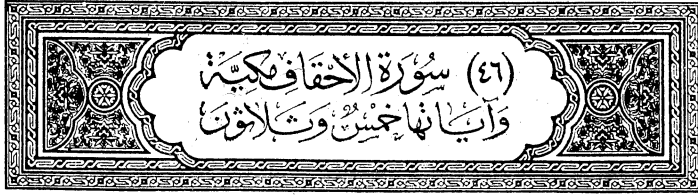 (٤٦) سُورَة الأحقاف مكيّة
وَآياتها خمسٌ وَثَلاثون